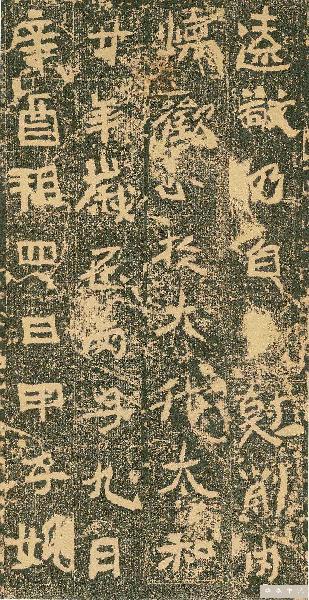 遠自
懷歡心於大代太和
廿年歲在丙子九月
辛酉朔四日甲子姚